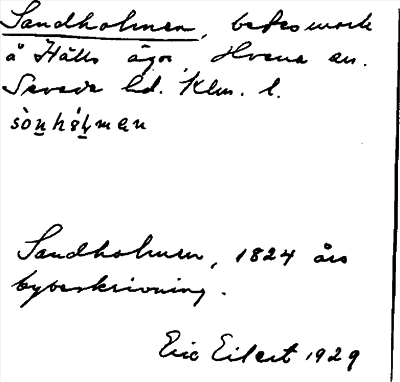 Sandholmen, betesmark
å Hålls ägor, Hvena sn.
Sevede hd. Klm. l.
sònhólmen
Sandholmen, 1824 års
bybeskrivning.
Eric Eilert 1929